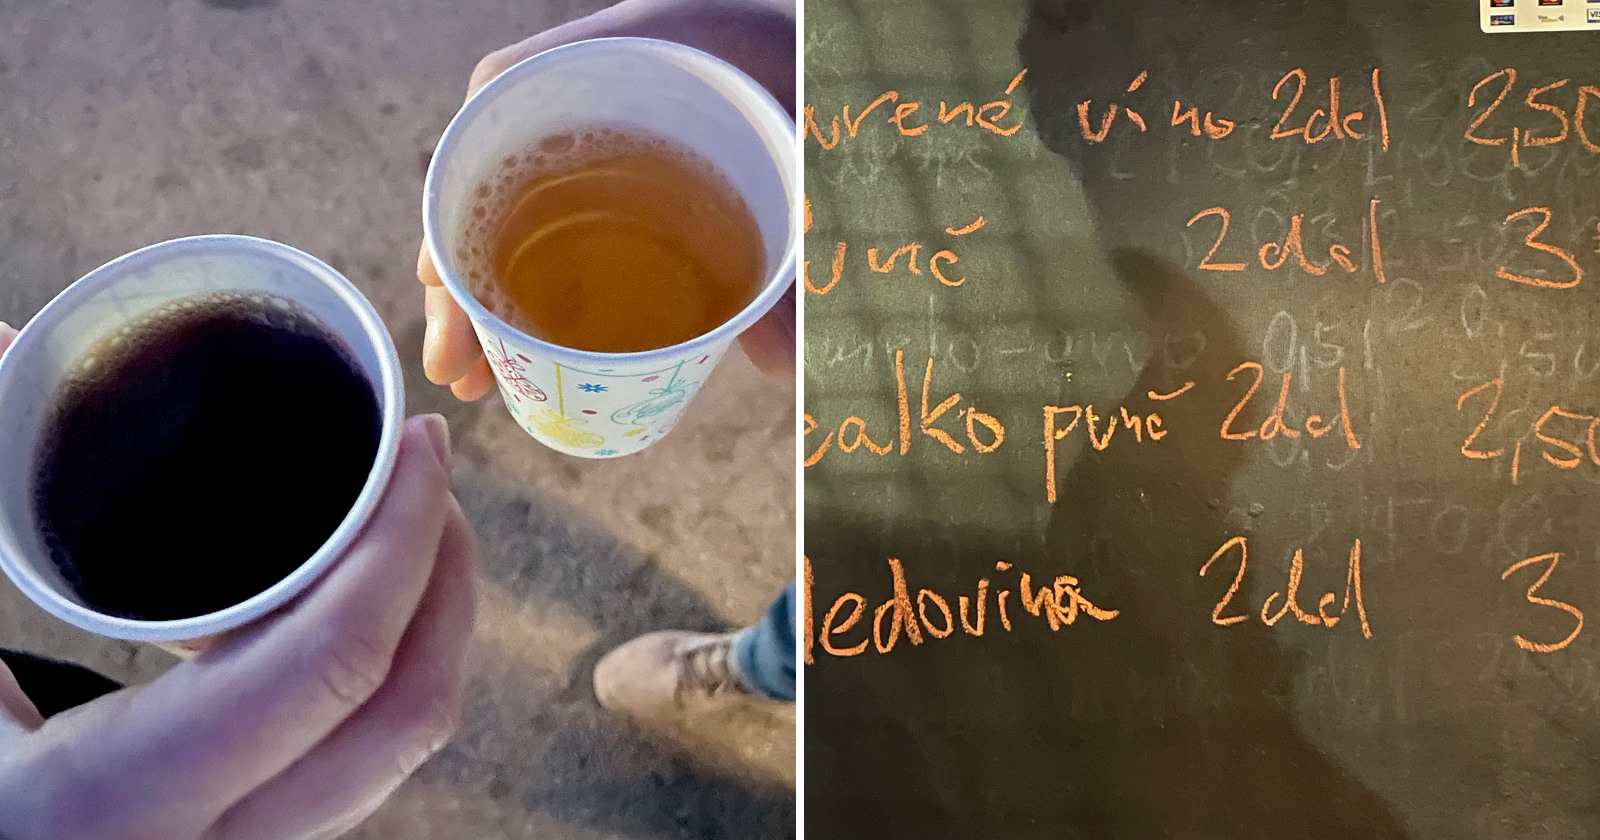 varené víno 2dcl 2,50
Punč 2dcl 3
ealko punč 2dcl 2,50
Medovina 2dcl 3